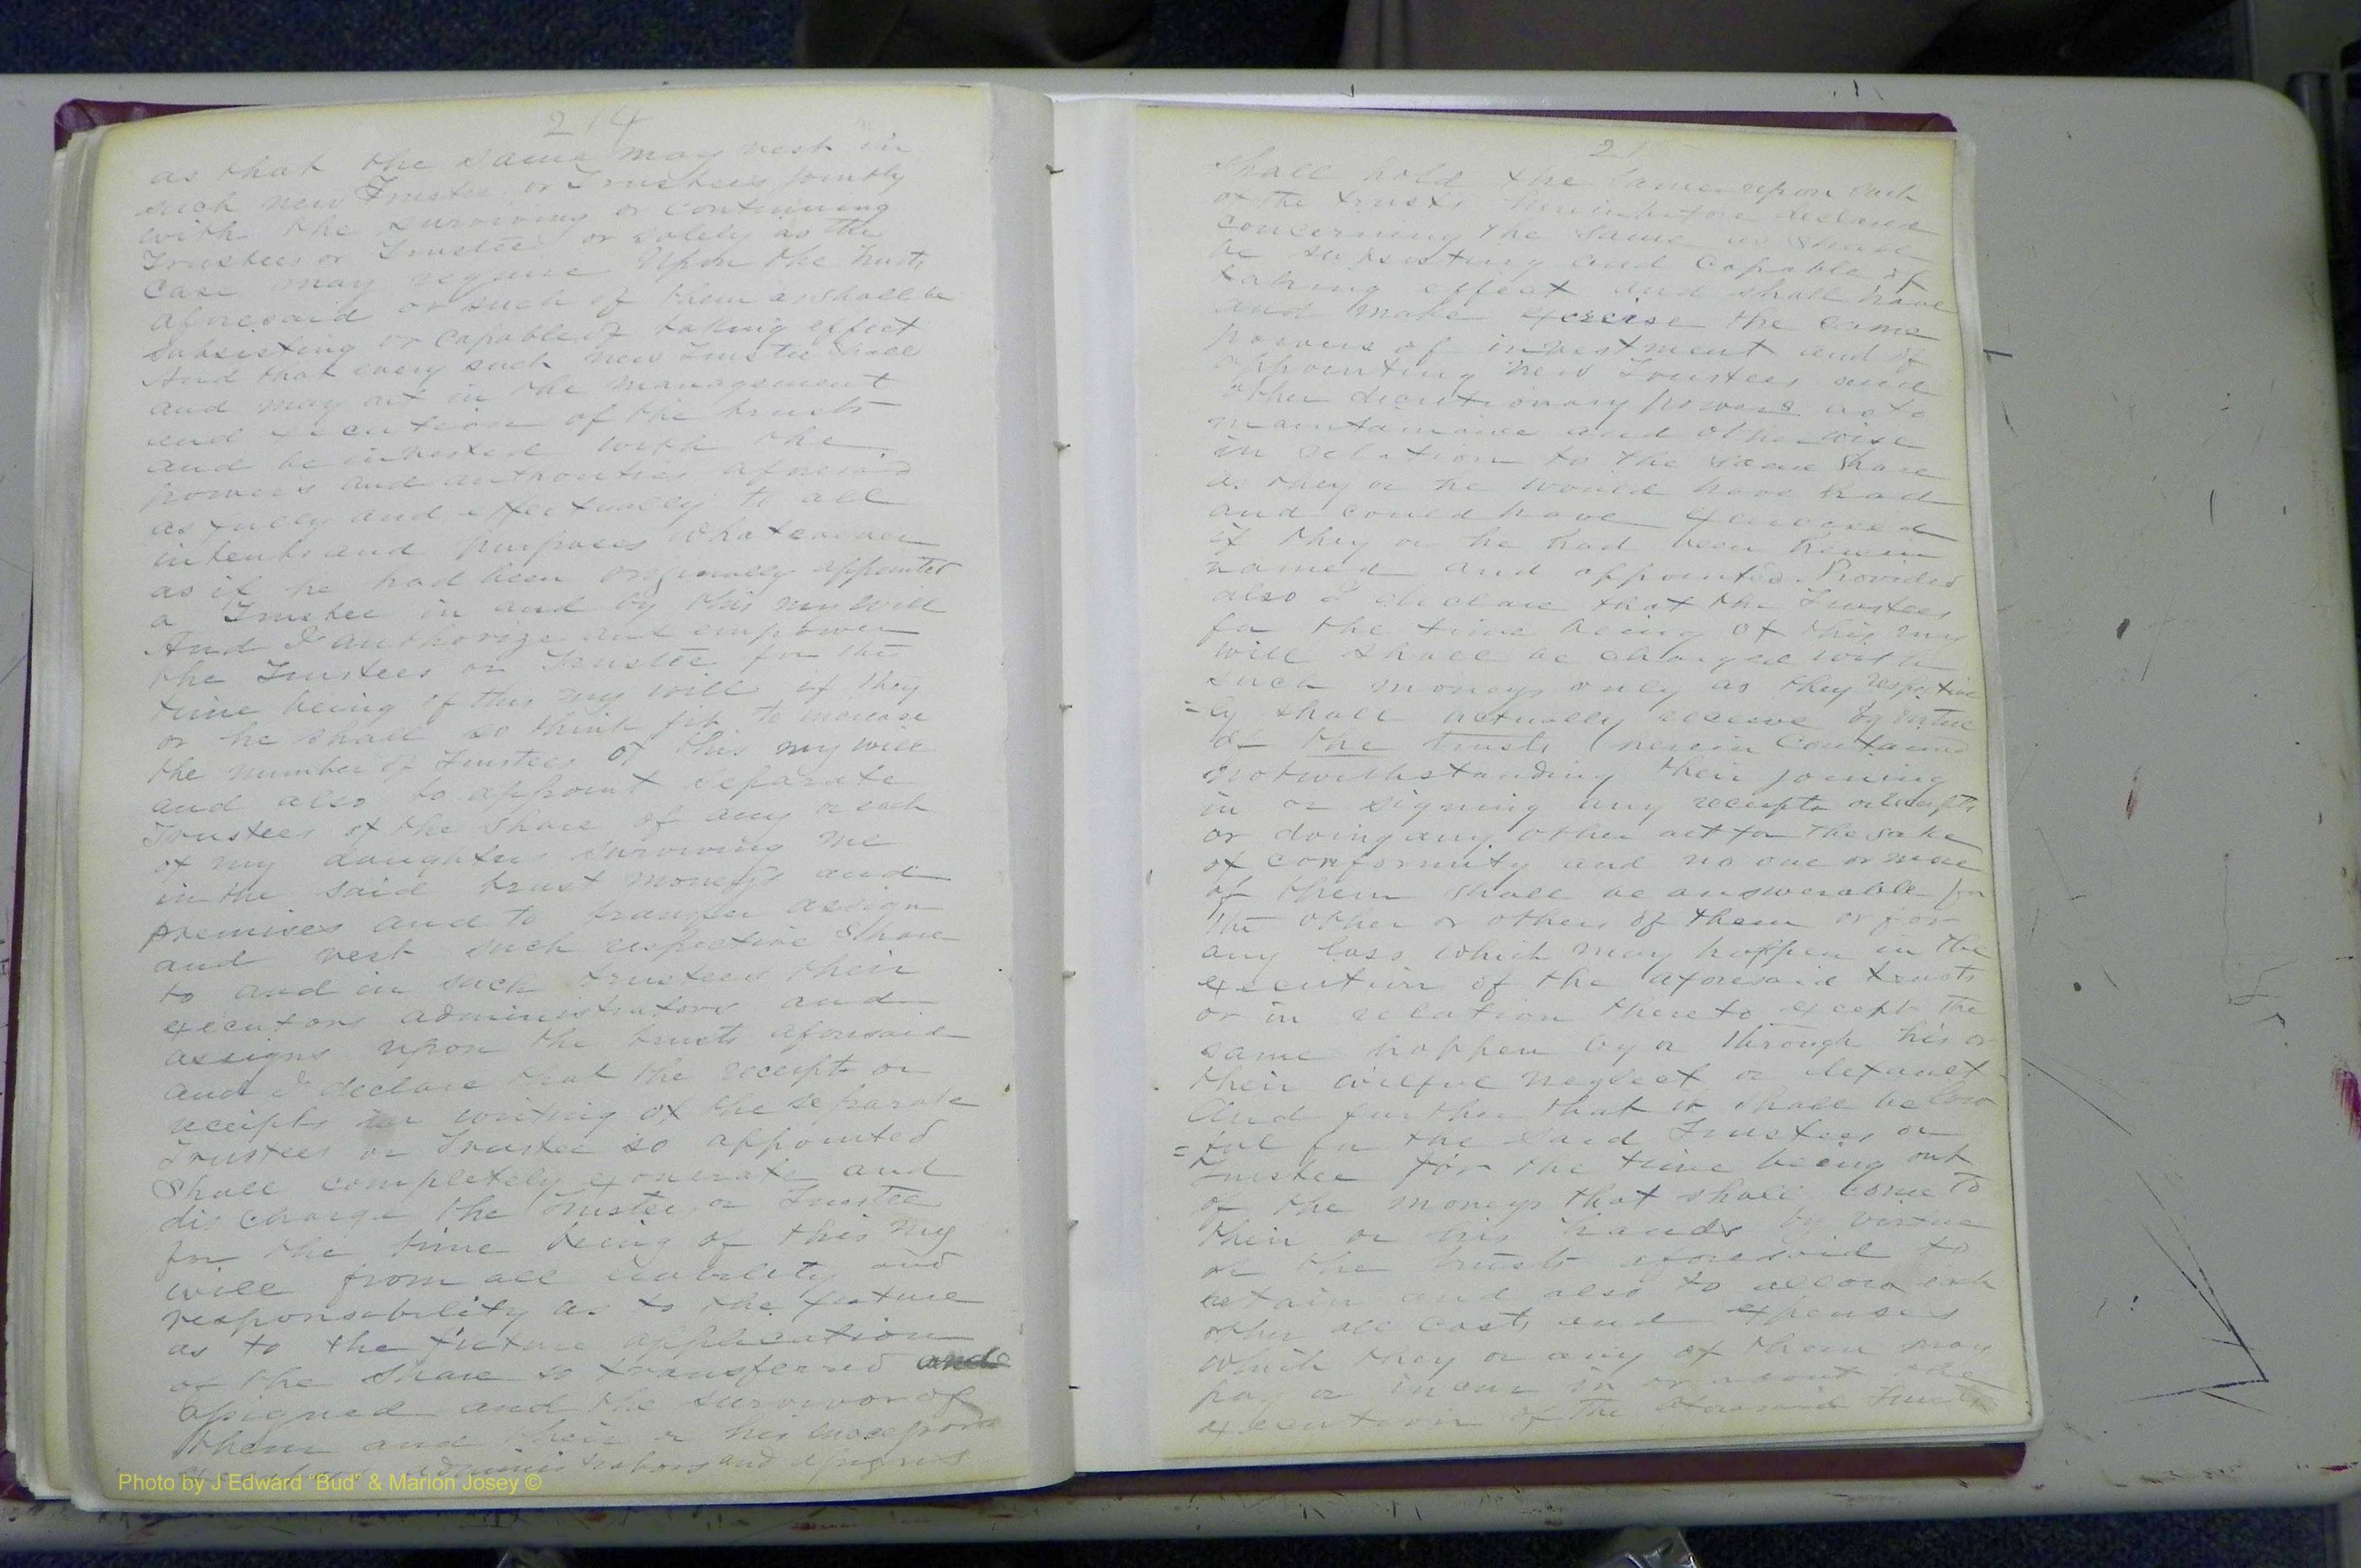 214
as that the same may vest in
such new Trustee or Trustees jointly
with the surviving or continuing
Trustees or Trustee or solely as the
case may require Upon the trusts
aforesaid or such of them as shall be
subsisting or capable of taking effect
And that every such new Trustee shall
and may act in the management
and execution of the trusts
and be invested with the
powers and authorities aforesaid
as fully and effectually to all
intents and purposes whatsoever
as if he had been originally appointed
a Trustee in and by this my will
And I authorize and empower
the Trustees or Trustee for the
time being of this my will if they
or he shall so think fit to increase
the number of Trustees of this my will
and also to appoint separate
Trustees of the share of any or each
of my daughters surviving me
in the said trust moneys and
premises and to transfer assign
and vest such respective share
to and in such trustees their
executors administrators and
assigns upon the trusts aforesaid
and I declare that the receipt or
receipts in writing of the separate
Trustees or Trustee so appointed
Shall completely exonerate and
discharge the Trustees or Trustee
for the time being of this my
will from all liability and
responsibility as to the future
as to the future application
of the share so transferred and
assigned and the survivor of
them and their or his
administrators and assigns
Photo by J Edward "Bud" & Marion Josey ©
shall hold the same upon such
of the trusts hereinbefore declared
concerning the same as shall
be subsisting and capable of
taking effect and shall have
and make exercise the same
powers of investment and of
appointing new Trustees and
other discretionary powers as to
maintainance and otherwise
in relation to the same share
as they or he would have had
and could have exercised
if they or he had been herein
named and appointed. Provided
also I declare that the Trustees
for the time being of this my
will shall be charged with
such moneys only as they respective
=ly shall actually receive by virtue
of the trusts herein contained
notwithstanding their joining
in or signing any receipt or receipts
or doing any other act for the sake
of conformity and no one or more
of them shall be answerable for
the other or others of them or for
any loss which may happen in the
execution of the aforesaid trusts
or in relation thereto except the
same happen by or through his or
their wilful neglect or default
And further that it shall be law
=ful for the said Trustees or
Trustee for the time being out
of the moneys that shall come to
their or his hands by virtue
of the trusts aforesaid to
retain and also to allow each
other all costs and expenses
which they or any of them may
pay or incur in or about the
execution of the aforesaid trusts